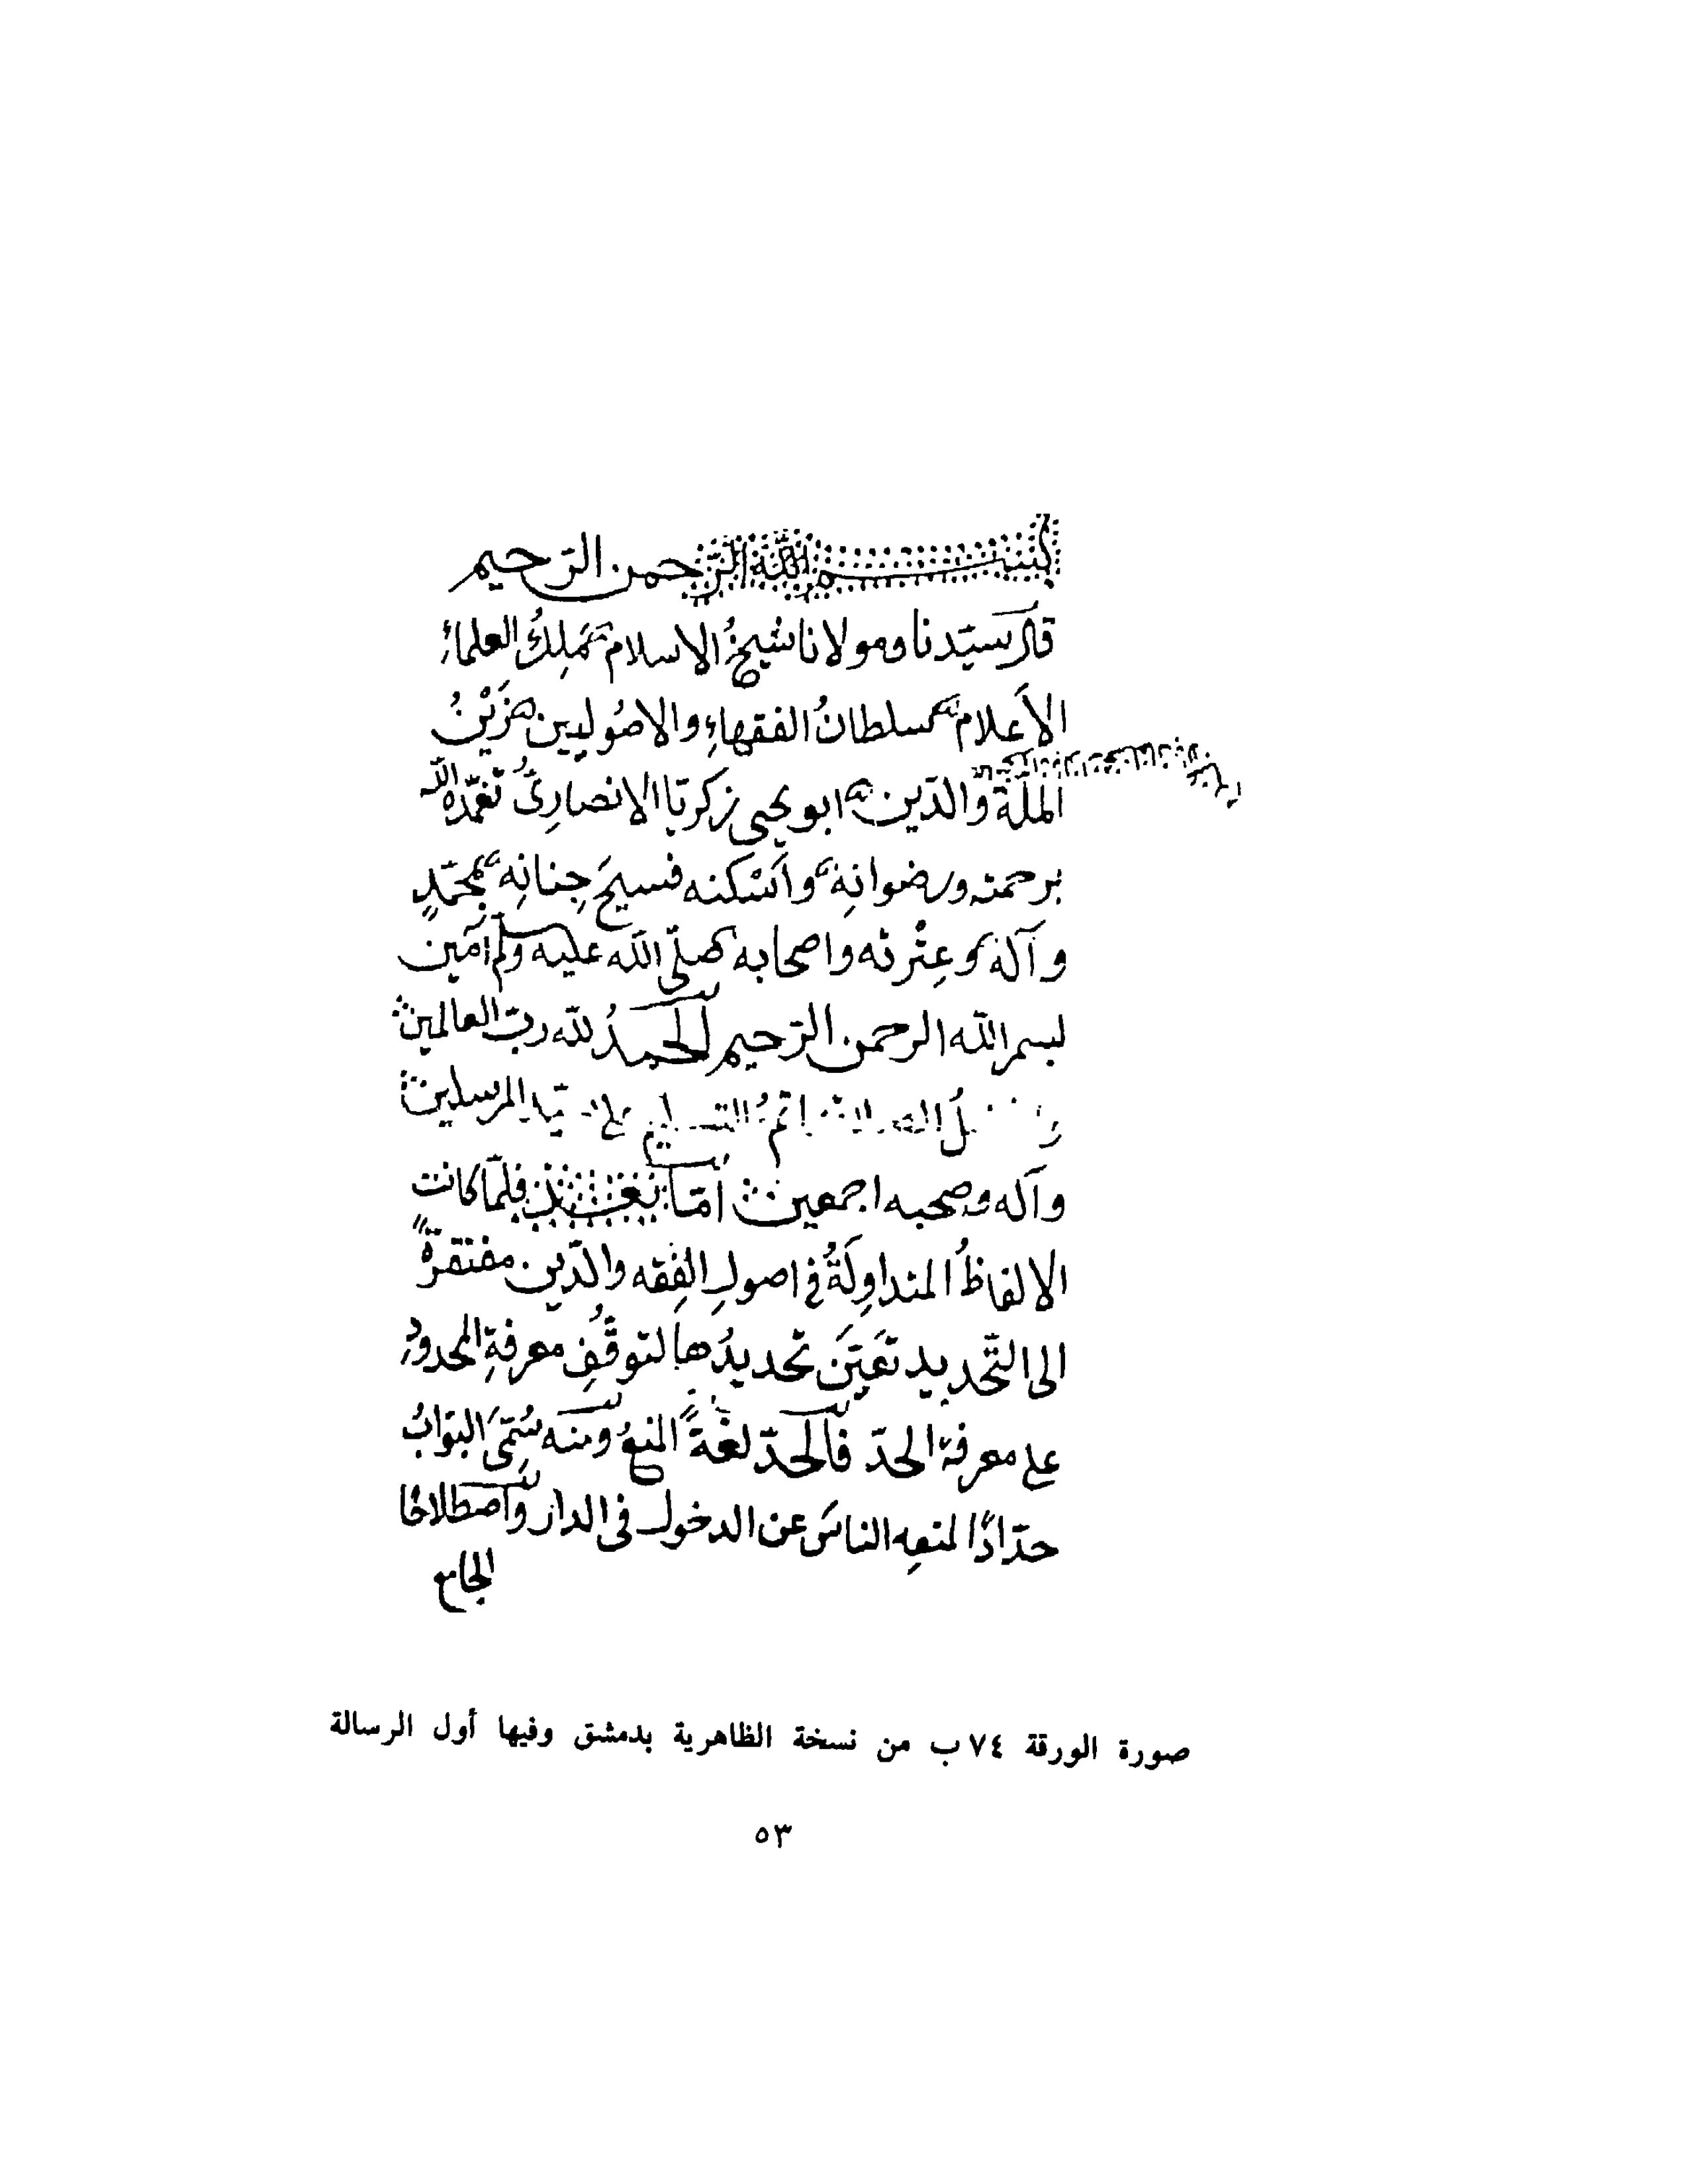 بسم الله الرحمن الرحيم
قال سيّدنا ومولانا شيخُ الاسلام مَلِكُ العلماءِ
الأَعلام سلطانُ الفقهاءِ والاصُوليين زَيْنُ
الملّة والدّين ابو يحيى زكريّا الانصارِىُّ تغمّده الله
برحمته ورضوانِه وأسْكنه فسيحَ جِنانِه بمحمّدٍ
وآله وعِتْرته واصحابه صلّى الله عليه وسلم آمين
بسم الله الرحمن الرّحيم الحمدُ لله ربّ العالمين
اتمُّ التسليم على سيّد المرسلين
وآله وصحبه اجمعين أمّا بعد فلمّا كانت
الالفاظُ المتداوِلَةُ في اصولِ الفِقه والدّين مفتقرةً
الى التّحديد تَعَيَّن تحديدُها لتوقُّفِ معرفةِ المحدودِ
على معرفة الحدّ فالحدّ لغةً المنعُ ومنه سُمِّىَ البوّابُ
حدّادًا لمنعِه الناسَ عن الدخول في الدار واصطلاحًا
الجامع
صورة الورقة ٧٤ ب من نسخة الظاهرية بدمشق وفيها أول الرسالة
٥٣